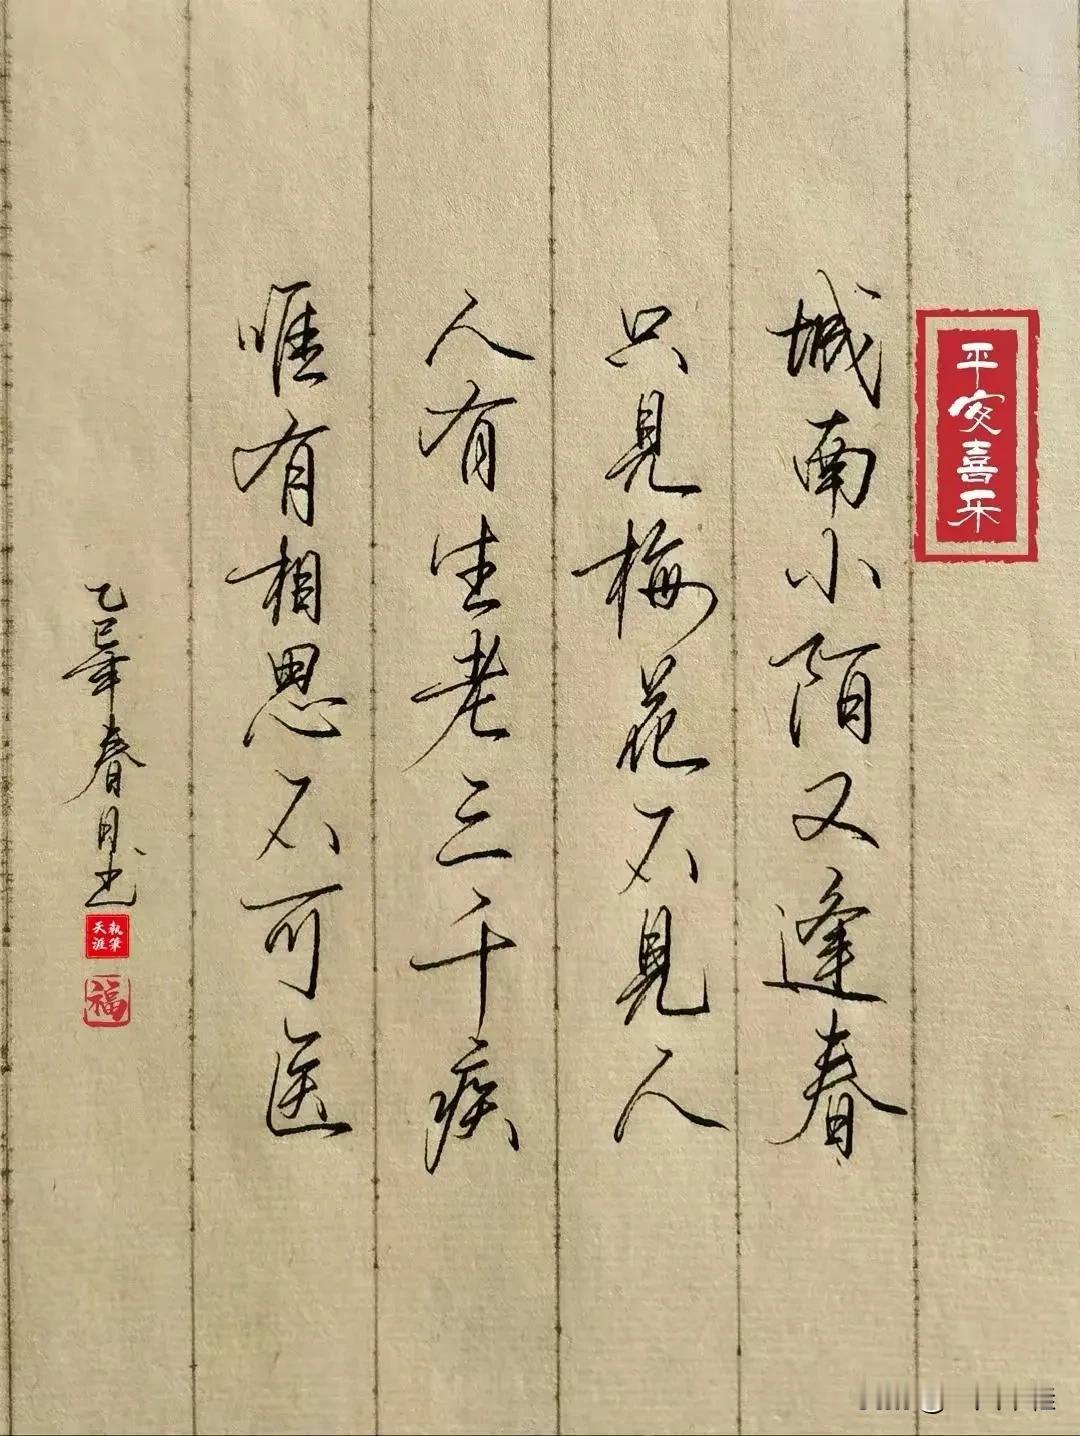 平安喜乐
城南小陌又逢春
只见梅花不见人
人有生老三千疾
唯有相思不可医
乙巳年春月书
执笔天涯
福